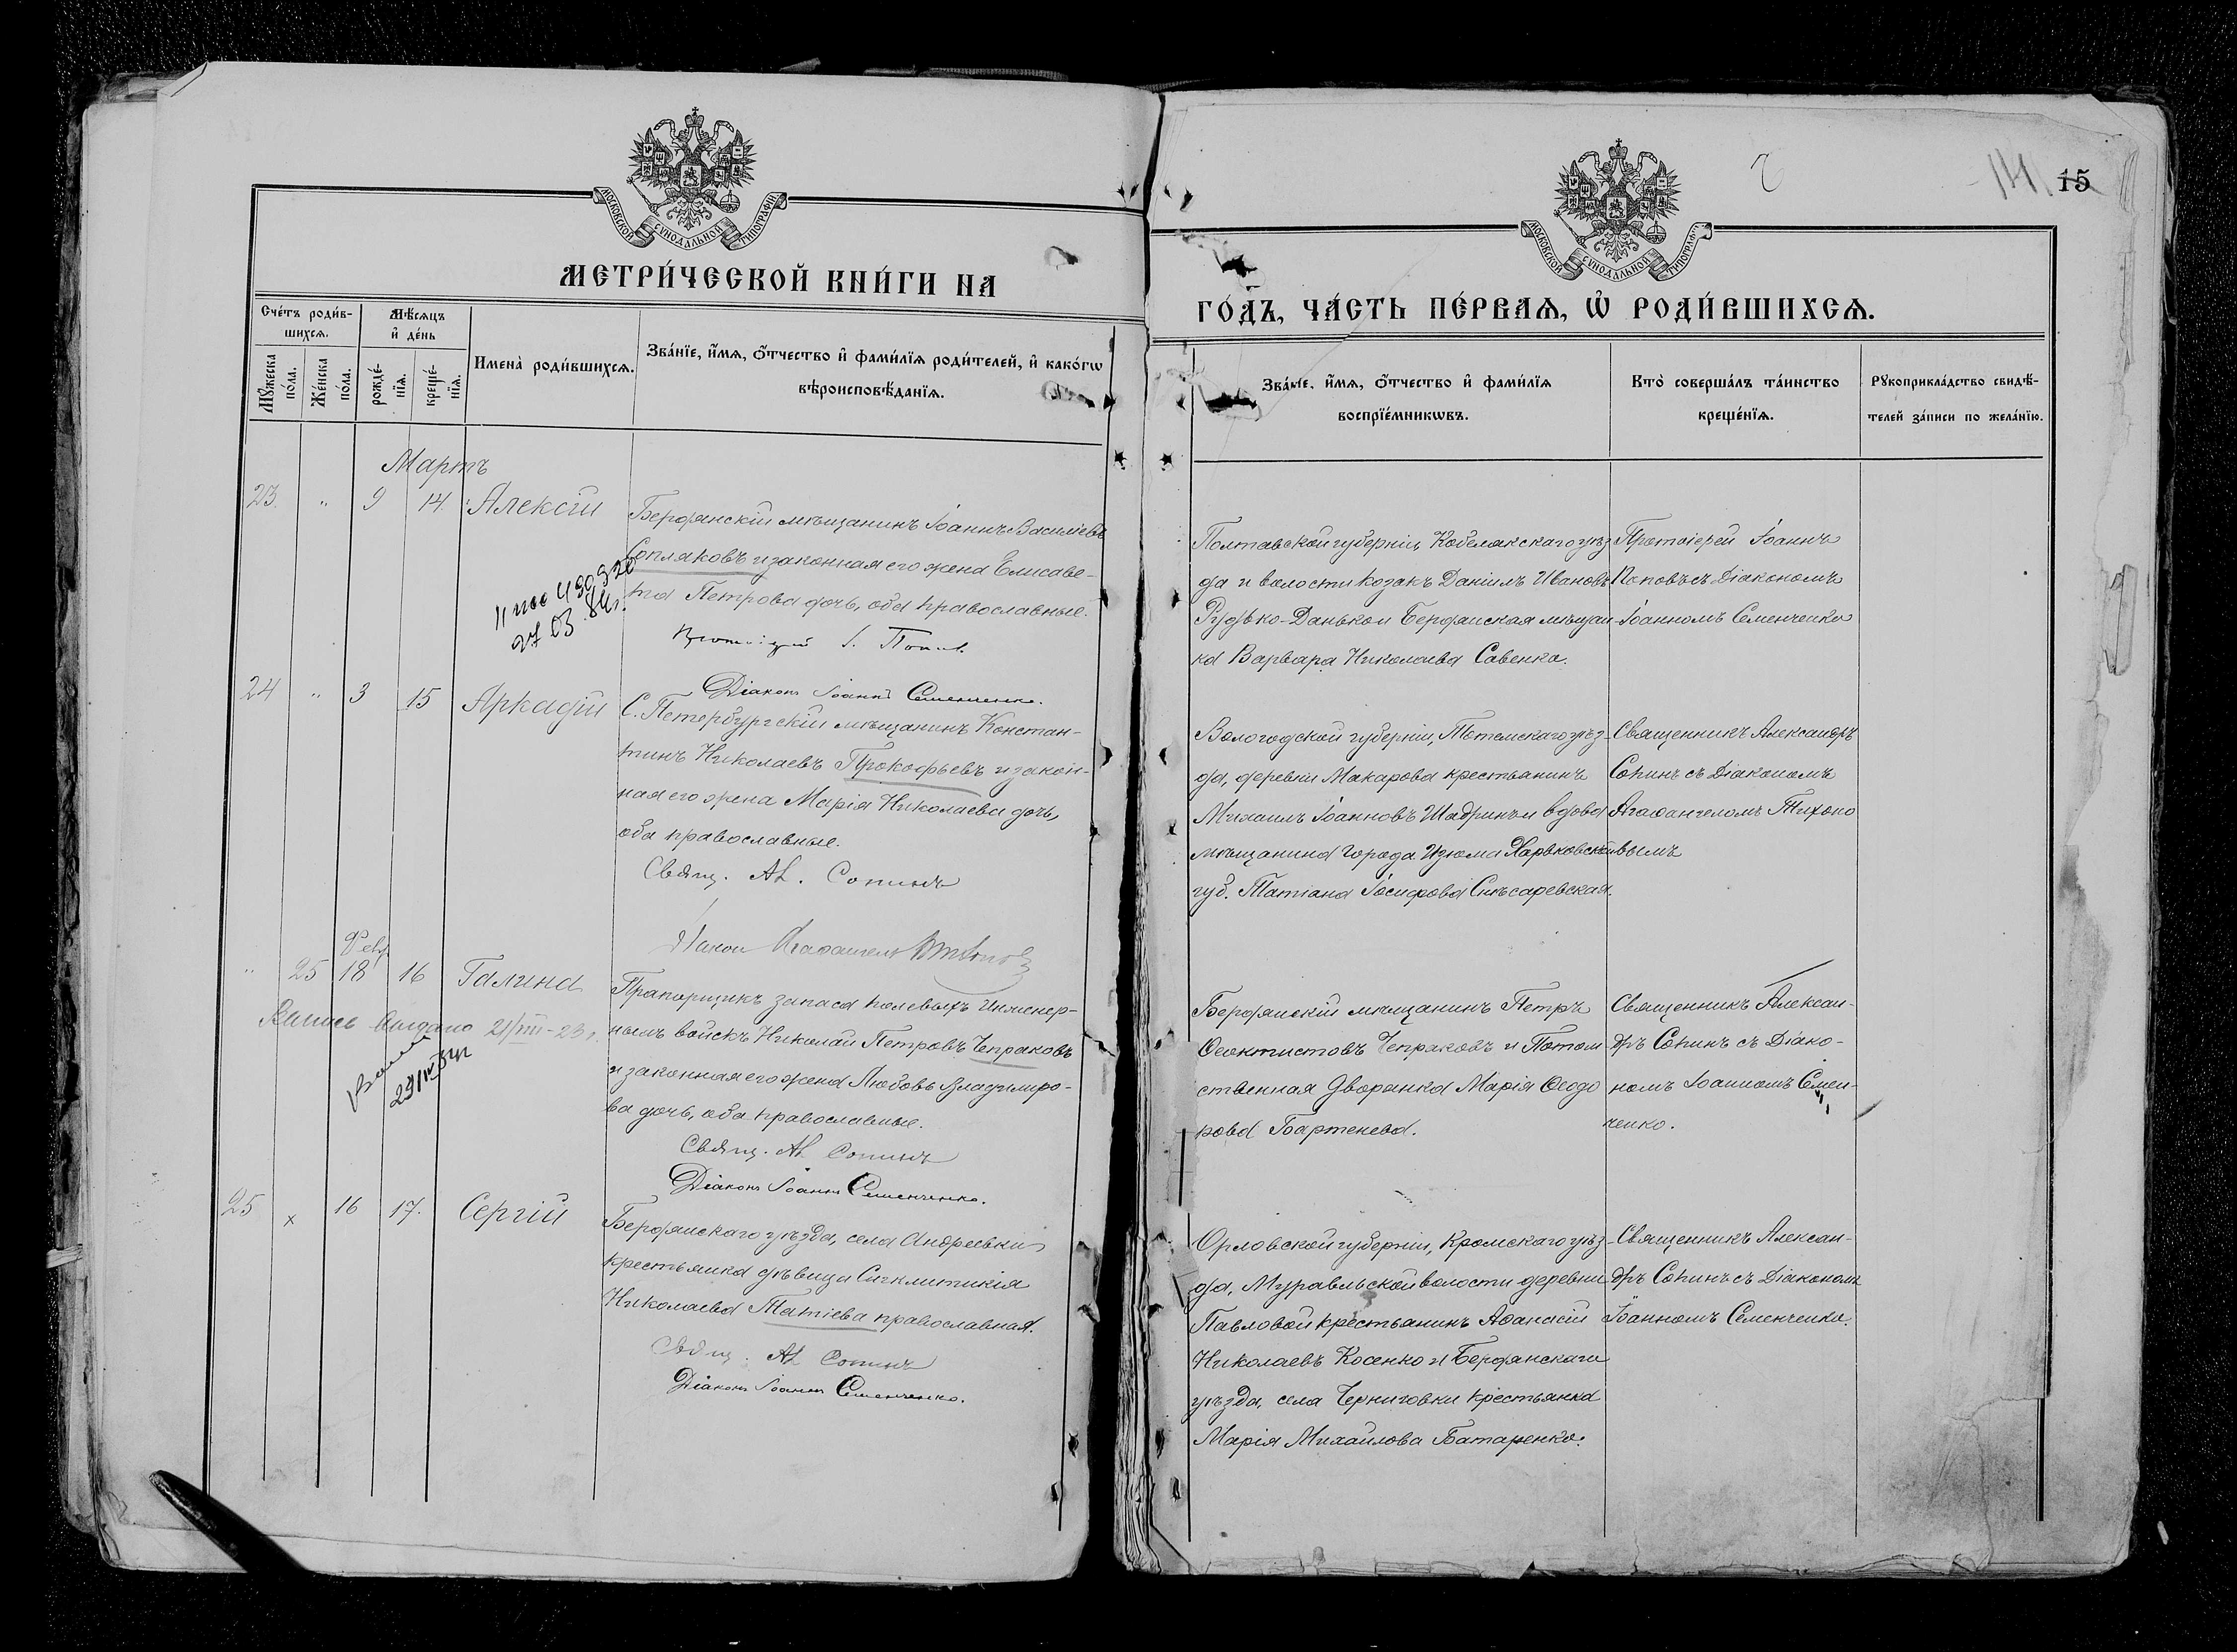 МОСКОВСКОЙ СѴНОДАЛЬНОЙ ТИПОГРАФІИ
МЕТРИ́ЧЕСКОЙ КНИ́ГИ НА
Сче́тъ роди́в-
шихсѧ.
Мѣ́сѧцъ
и҆ де́нь
Мꙋ́жеска
по́ла.
Же́нска
по́ла.
рожде́-
нїѧ.
креще́-
нїѧ.
Имена̀ роди́вшихсѧ.
Зва́нїе, и҆́мѧ, ѻ҆́тчество и҆ фами́лїѧ роди́телей, и҆ како́гѡ
вѣроисповѣ́данїѧ.
Мартъ
23 " 9 14 Алексій
Бердянскій мѣщанинъ Іоаннъ Васильевъ
Сопляковъ и законная его жена Елисаве-
та Петрова дочь, оба православные.
27 03
Протоіерей І. Поповъ
Діаконъ Іоаннъ Семенченко.
24 " 3 15 Аркадій
С. Петербургскій мѣщанинъ Констан-
тинъ Николаевъ Прокофьевъ и закон-
ная его жена Марія Николаева дочь,
оба православные.
Свящ. Ал. Сопинъ
Діаконъ Агаѳангелъ Тихоновъ
Февр
" 25 18 16 Галина
Прапорщикъ запаса полевыхъ Инженер-
ныхъ войскъ Николай Петровъ Чепраковъ
и законная его жена Любовь Владимиро-
ва дочь, оба православные.
Выпись выдана 21/VIII-23 г.
Свящ. Ал. Сопинъ
Діаконъ Іоаннъ Семенченко.
25 x 16 17. Сергій
Бердянскаго уѣзда, села Андреевки
крестьянка дѣвица Сигклитикія
Николаева Татіева православная.
Свящ. Ал. Сопинъ
Діаконъ Іоаннъ Семенченко.
15
МОСКОВСКОЙ СѴНОДАЛЬНОЙ ТИПОГРАФІИ
ГО́ДЪ, ЧА́СТЬ ПЕ́РВАѦ, Ѡ҆ РОДИ́ВШИХСѦ.
Зва́нїе, и҆́мѧ, ѻ҆́тчество и҆ фами́лїѧ
воспрїе́мникѡвъ.
Кто̀ соверша́лъ та́инство
креще́нїѧ.
Рꙋкоприкла́дство свидѣ́-
телей за́писи по жела́нїю.
Полтавской губерніи, Кобелякскаго уѣз-
да и волости козакъ Даніилъ Ивановъ
Рудько-Данько и Бердянская мѣщан-
ка Варвара Николаева Савенко.
Протоіерей Іоаннъ
Поповъ съ Діакономъ
Іоанномъ Семенченко
Вологодской губерніи, Тотемскаго уѣз-
да, деревни Макарова крестьянинъ
Михаилъ Іоанновъ Шадринъ и вдова
мѣщанина города Изюма Харьковской
губ. Татіана Іосифова Слѣсаревская.
Священникъ Александръ
Сопинъ съ Діакономъ
Агаѳангеломъ Тихоно
вымъ
Бердянскій мѣщанинъ Петръ
Ѳеоктистовъ Чепраковъ и Потом
ственная Дворянка Марія Ѳеодо
рова Бартенева.
Священникъ Алексан-
дръ Сопинъ съ Діако-
номъ Іоанномъ Семен-
ченко.
Орловской губерніи, Кромскаго уѣз-
да, Муравльской волости деревни
Павловой крестьянинъ Аѳанасій
Николаевъ Косенко и Бердянскаго
уѣзда, села Черниговки крестьянка
Марія Михайлова Батаренко.
Священникъ Алексан-
дръ Сопинъ съ Діакономъ
Іоанномъ Семенченко.